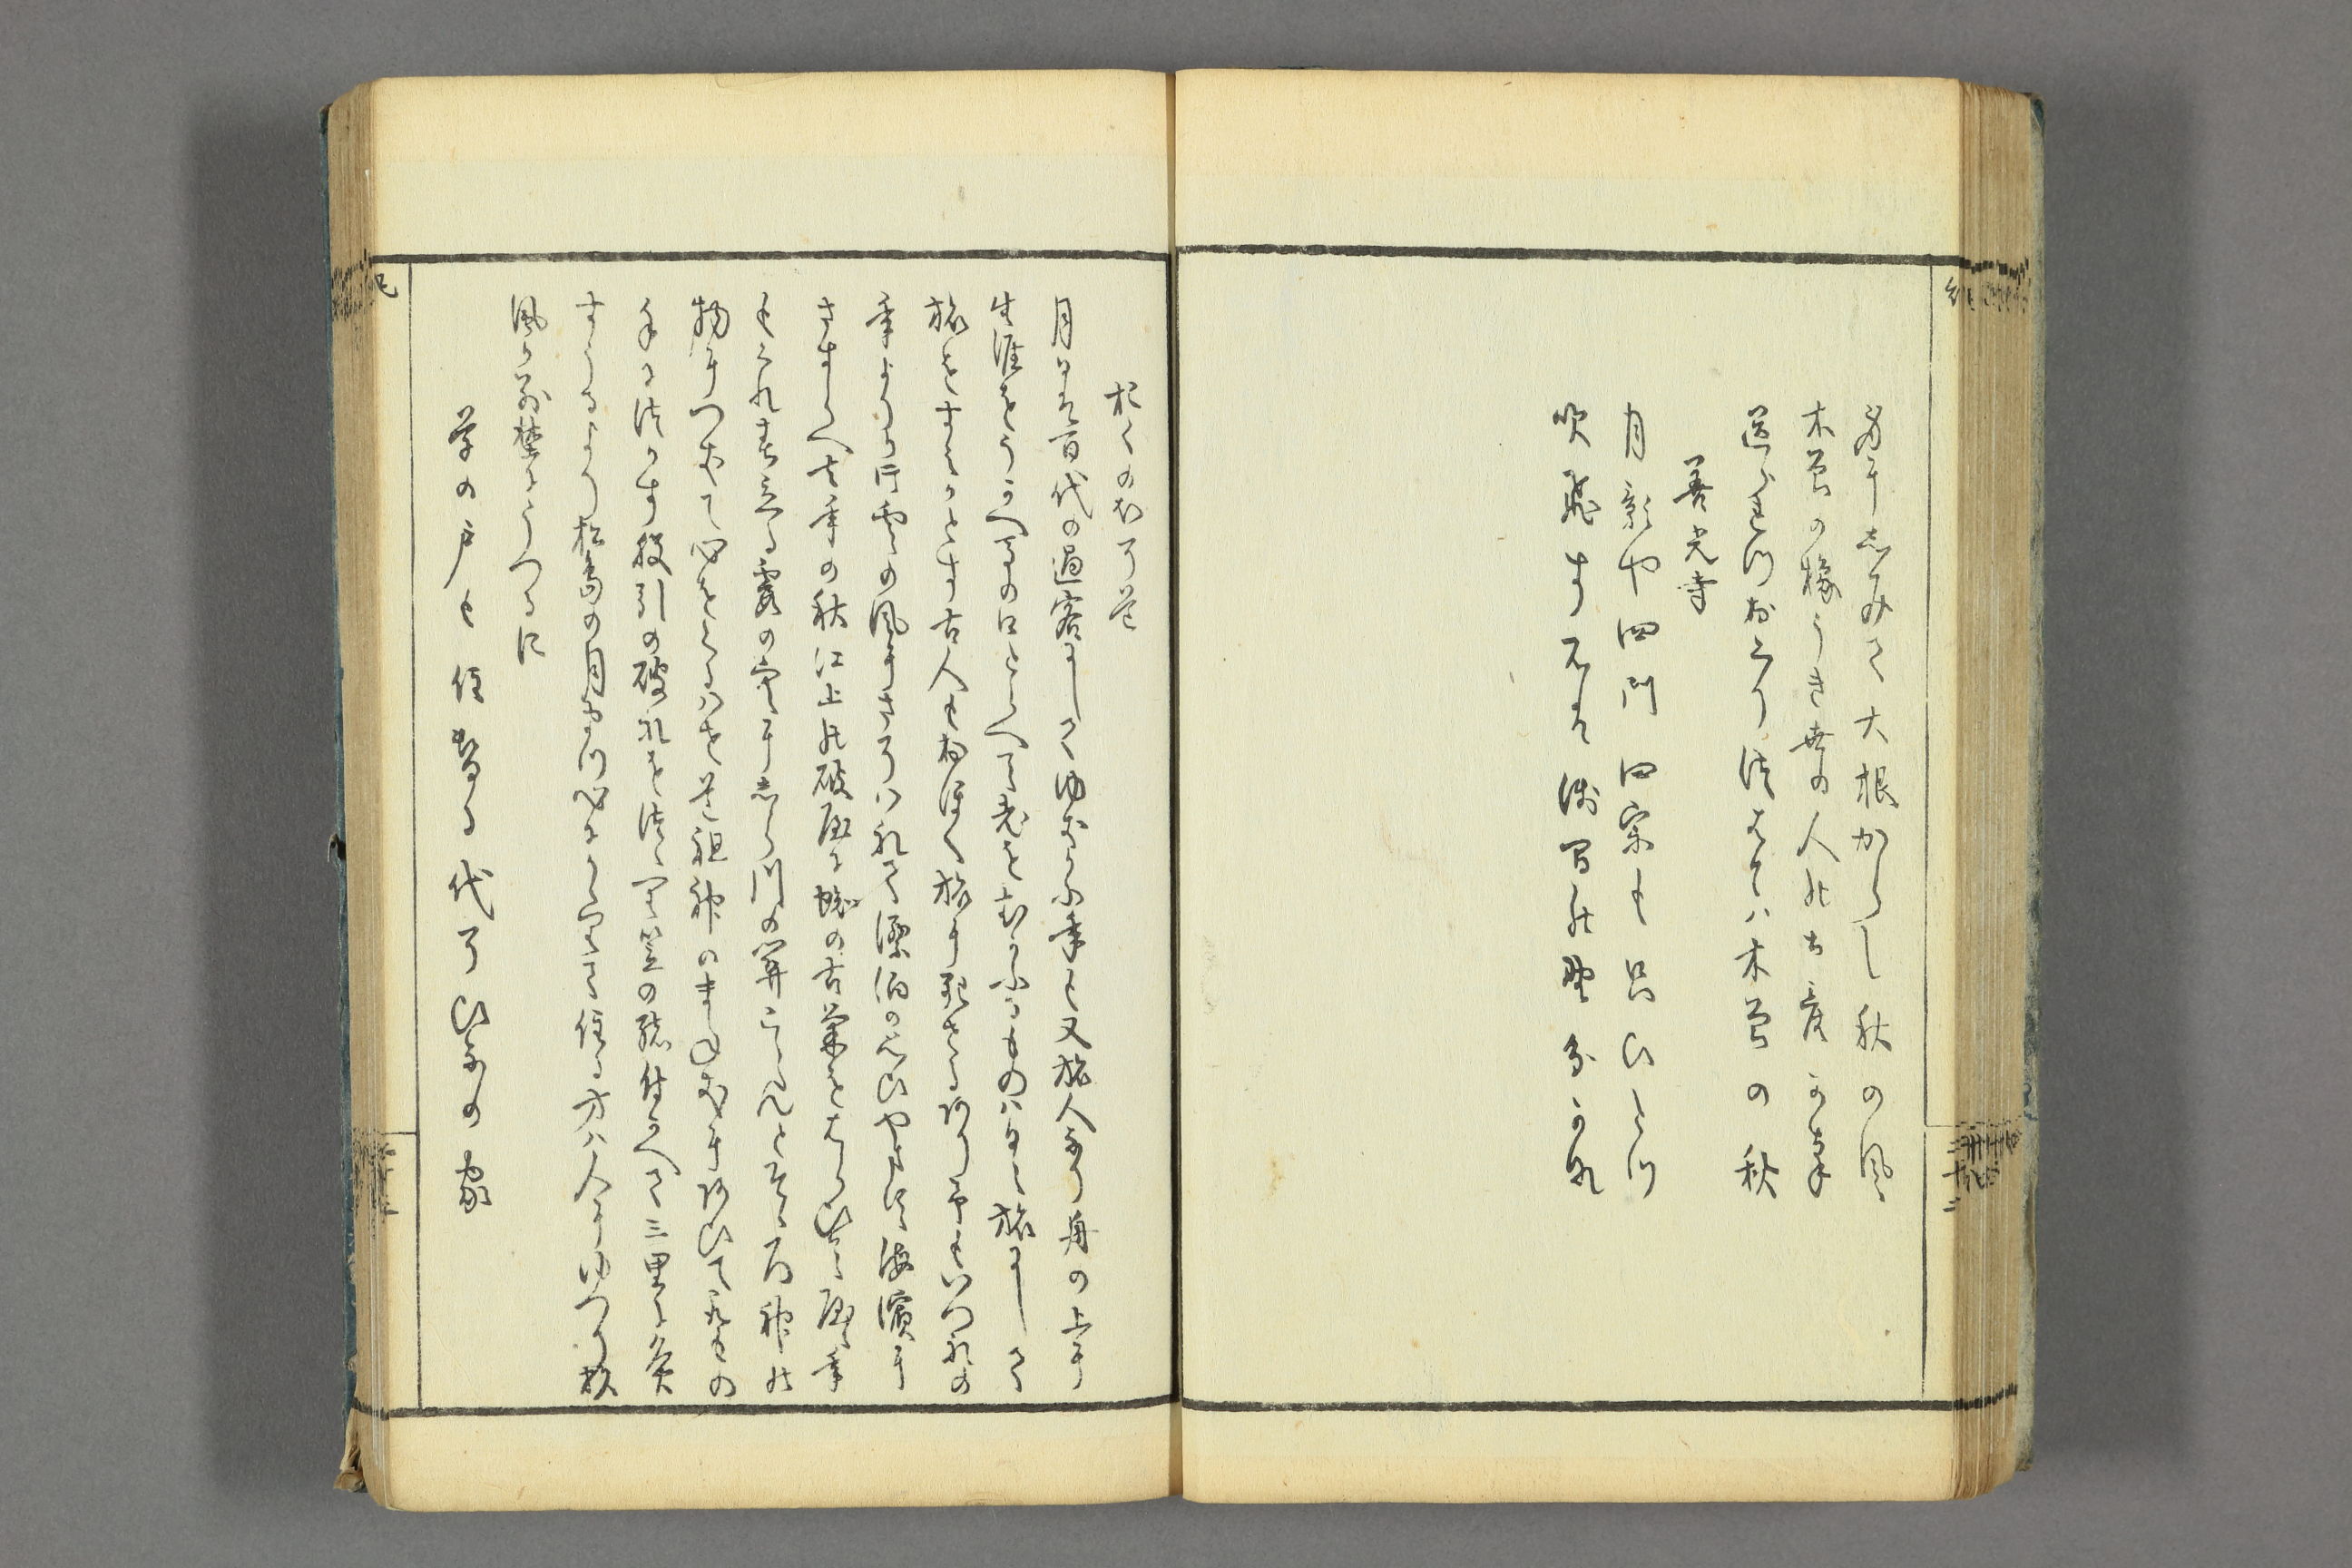 身にしみて大根からし秋の風
木曽の橡うき世の人の土産かな
送られつおくりつはては木曽の秋
善光寺
月影や四門四宗も只ひとつ
吹飛す石は浅間の野分かな
おくのほそ道
月日は百代の過客にしてゆきかふ年も又旅人なり舟の上に
生涯をうかへ馬の口とらへて老をむかふるものは日々旅にして
旅をすみかとす古人も多く旅に死せるあり予もいつれの
年よりか片雲の風にさそはれて漂泊の思ひやます海濱に
さすらへ去年の秋江上の破屋に蜘の古巣をはらひやゝ年
もくれ春立る霞の空にしら川の関こえんとそゝろ神の
物につきて心をくるはせ道祖神のまねきにあひて取もの
手につかす股引の破れをつゝり笠の緒付かへて三里に灸
すうるより松島の月まつ心にかゝりて住る方は人にゆつり杉
風か別墅にうつるに
草の戸も住替る代そひなの家